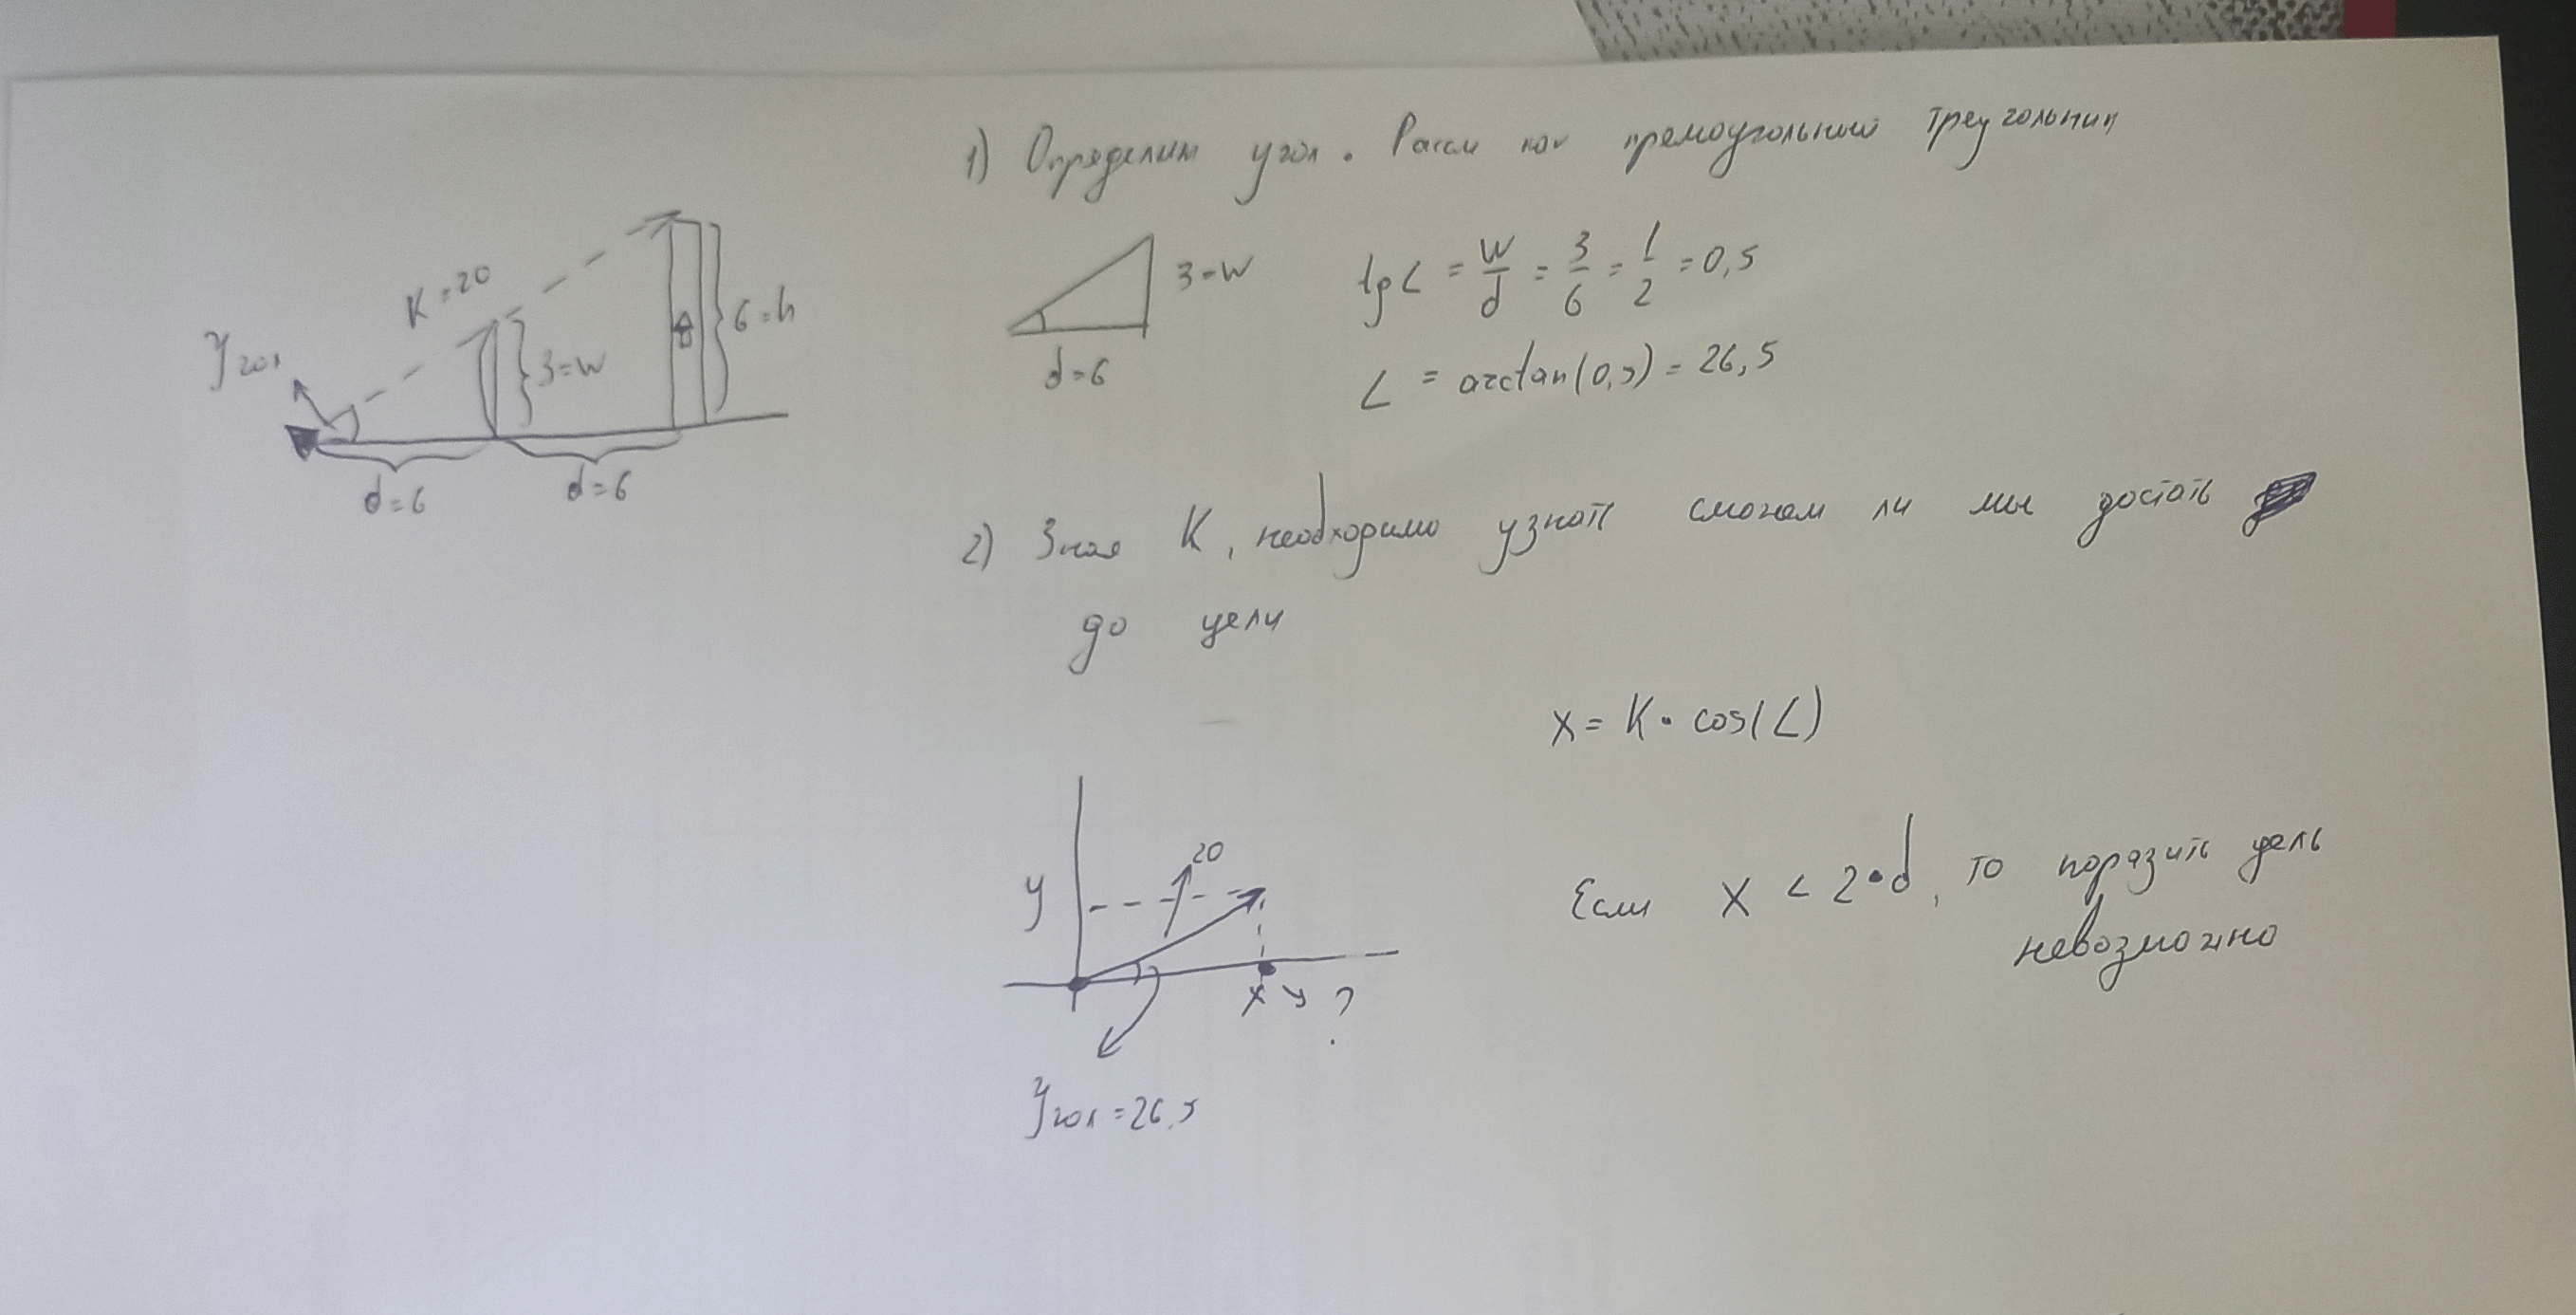 1) Определим угол. Рассм как прямоугольный треугольник
K=20
Угол
3=w
6=h
d=6
d=6
3=w
d=6
tg∠ = w/d = 3/6 = 1/2 = 0,5
∠ = arctan(0,5) = 26,5
2) Зная K, необходимо узнать сможем ли мы достать
до цели
x = K · cos(∠)
y
20
x y ?
Угол = 26,5
Если x < 2·d, то поразить цель
невозможно